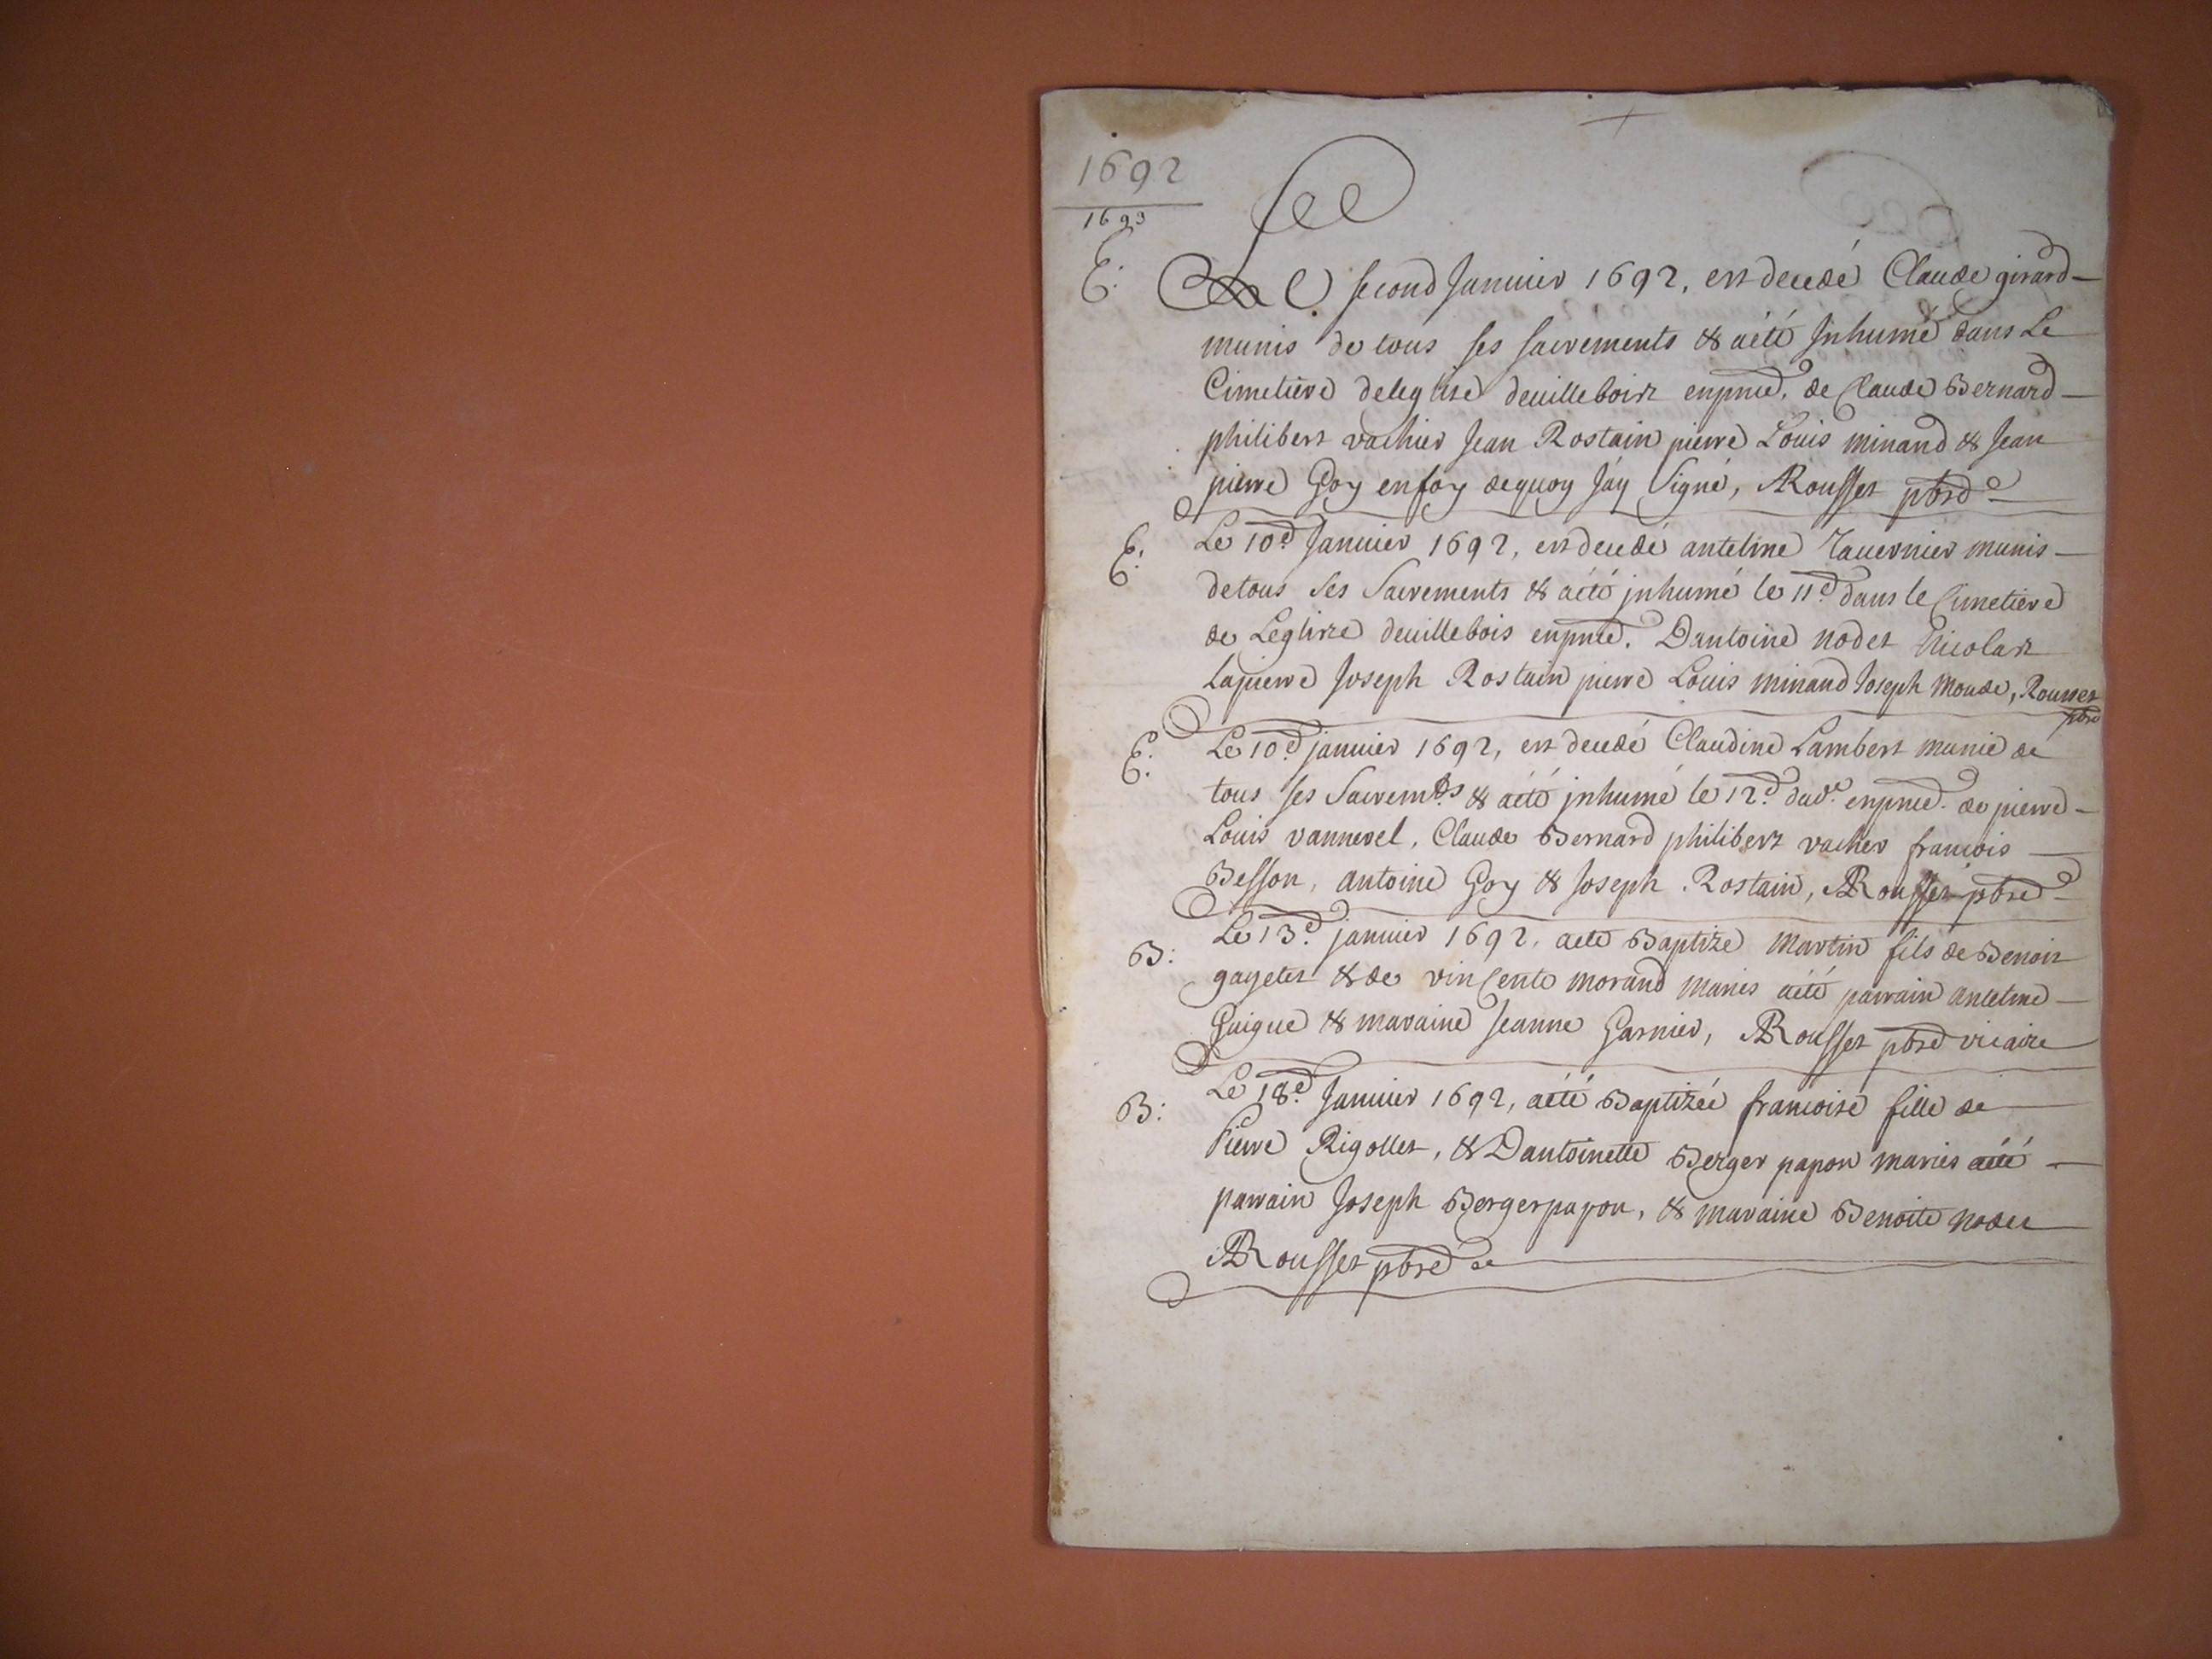 1692
1693
E.
Le second Januier 1692, est decedé Claude girard
munis de tous ses sacrements & aété Inhumé dans Le
Cimetiere deleglise deuillebois enpnce. de Claude Bernard
philibert vachier Jean Rostain pierre Louis minand & Jean
pierre Goy enfoy dequoy Jáy Signé, ARousset pbre
E.
Le 10e Januier 1692, est decedé antelme Tauernier munis
detous ses Sacrements & aété jnhumé le 11e dans le Cimetiere
de Leglise deuillebois enpnce. Dantoine nodet Nicolas
Lapierre Joseph Rostain pierre Louis minand Joseph Moude, Rousset
pbre
E.
Le 10e januier 1692, est decedé Claudine Lambert munie de
tous ses Sacremts & aété jnhumé le 12e dud. enpnce de pierre
Louis vannevel, Claude Bernard philibert vachier francois
Besson, antoine Goy & Joseph Rostain, ARousset pbre
B:
Le 13e januier 1692, aeté Baptizé Martin fils de Benoit
gayetet & de vinCente morand maries aété parrain antelme
Guigue & maraine Jeanne Garnier, ARousset pbre vicaire
B:
Le 18e Januier 1692, aété Baptizée francoise fille de
Pierre Rigollet, & Dantoinette Berger papon maries aété
parrain Joseph Bergerpapon, & maraine Benoite nodet
ARousset pbre